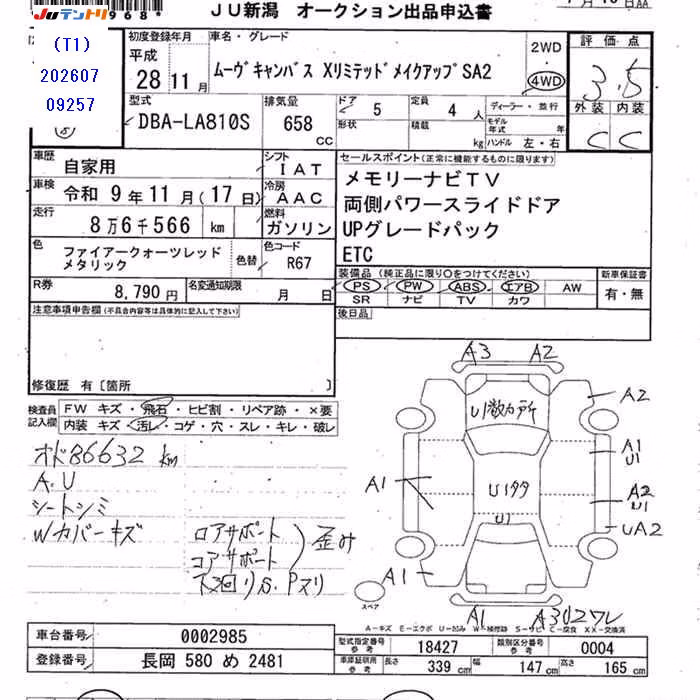 JUテントリ
968
JU新潟 オークション出品申込書
(T1)
202607
09257
初度登録年月
平成
28年11月
車名・グレード
ムーヴキャンバス XリミテッドメイクアップSA2
2WD
4WD
評価点
3.5
外装 内装
C C
型式
DBA-LA810S
排気量
658
CC
ドア
5
形状
定員
4人
積載
kg
ディーラー・並行
モデル年式 年式
ハンドル 左・右
車歴
自家用
シフト
IAT
車検
令和 9年11月(17日)
冷房
AAC
走行
8万6千566 km
燃料
ガソリン
色
ファイアークォーツレッド
メタリック
色替
色コード
R67
R券
8,790円
名変通知期限
月 日
セールスポイント(正常に機能するものに限ります)
メモリーナビTV
両側パワースライドドア
UPグレードパック
ETC
装備品(純正品に限り○をつけてください)
PS PW ABS エアB AW
SR ナビ TV カワ
新車保証書
有・無
後日品
注意事項申告欄(不具合内容等は具体的に記入して下さい)
修復歴 有〔箇所 〕
検査員記入欄
FW キズ・飛石・ヒビ割・リペア跡・×要
内装 キズ・汚レ・コゲ・穴・スレ・キレ・破レ
オド86632km
A.U
シートシミ
Wカバーキズ
ロアサポート
コアサポート
歪み
下回りS.Pズリ
A3 A2
U1数カ所
A2
A1
U1
A1
U1
A2
U1
UA2
A1
A1
スペア
A-キズ E-エクボ U-凹み W-補修跡 S-サビ C-腐食 XX-交換済
車台番号
0002985
登録番号
長岡 580 め 2481
型式指定番号
参考
18427
類別区分番号
参考
0004
車庫証明用
参考
長さ 339cm 幅 147cm 高さ 165cm